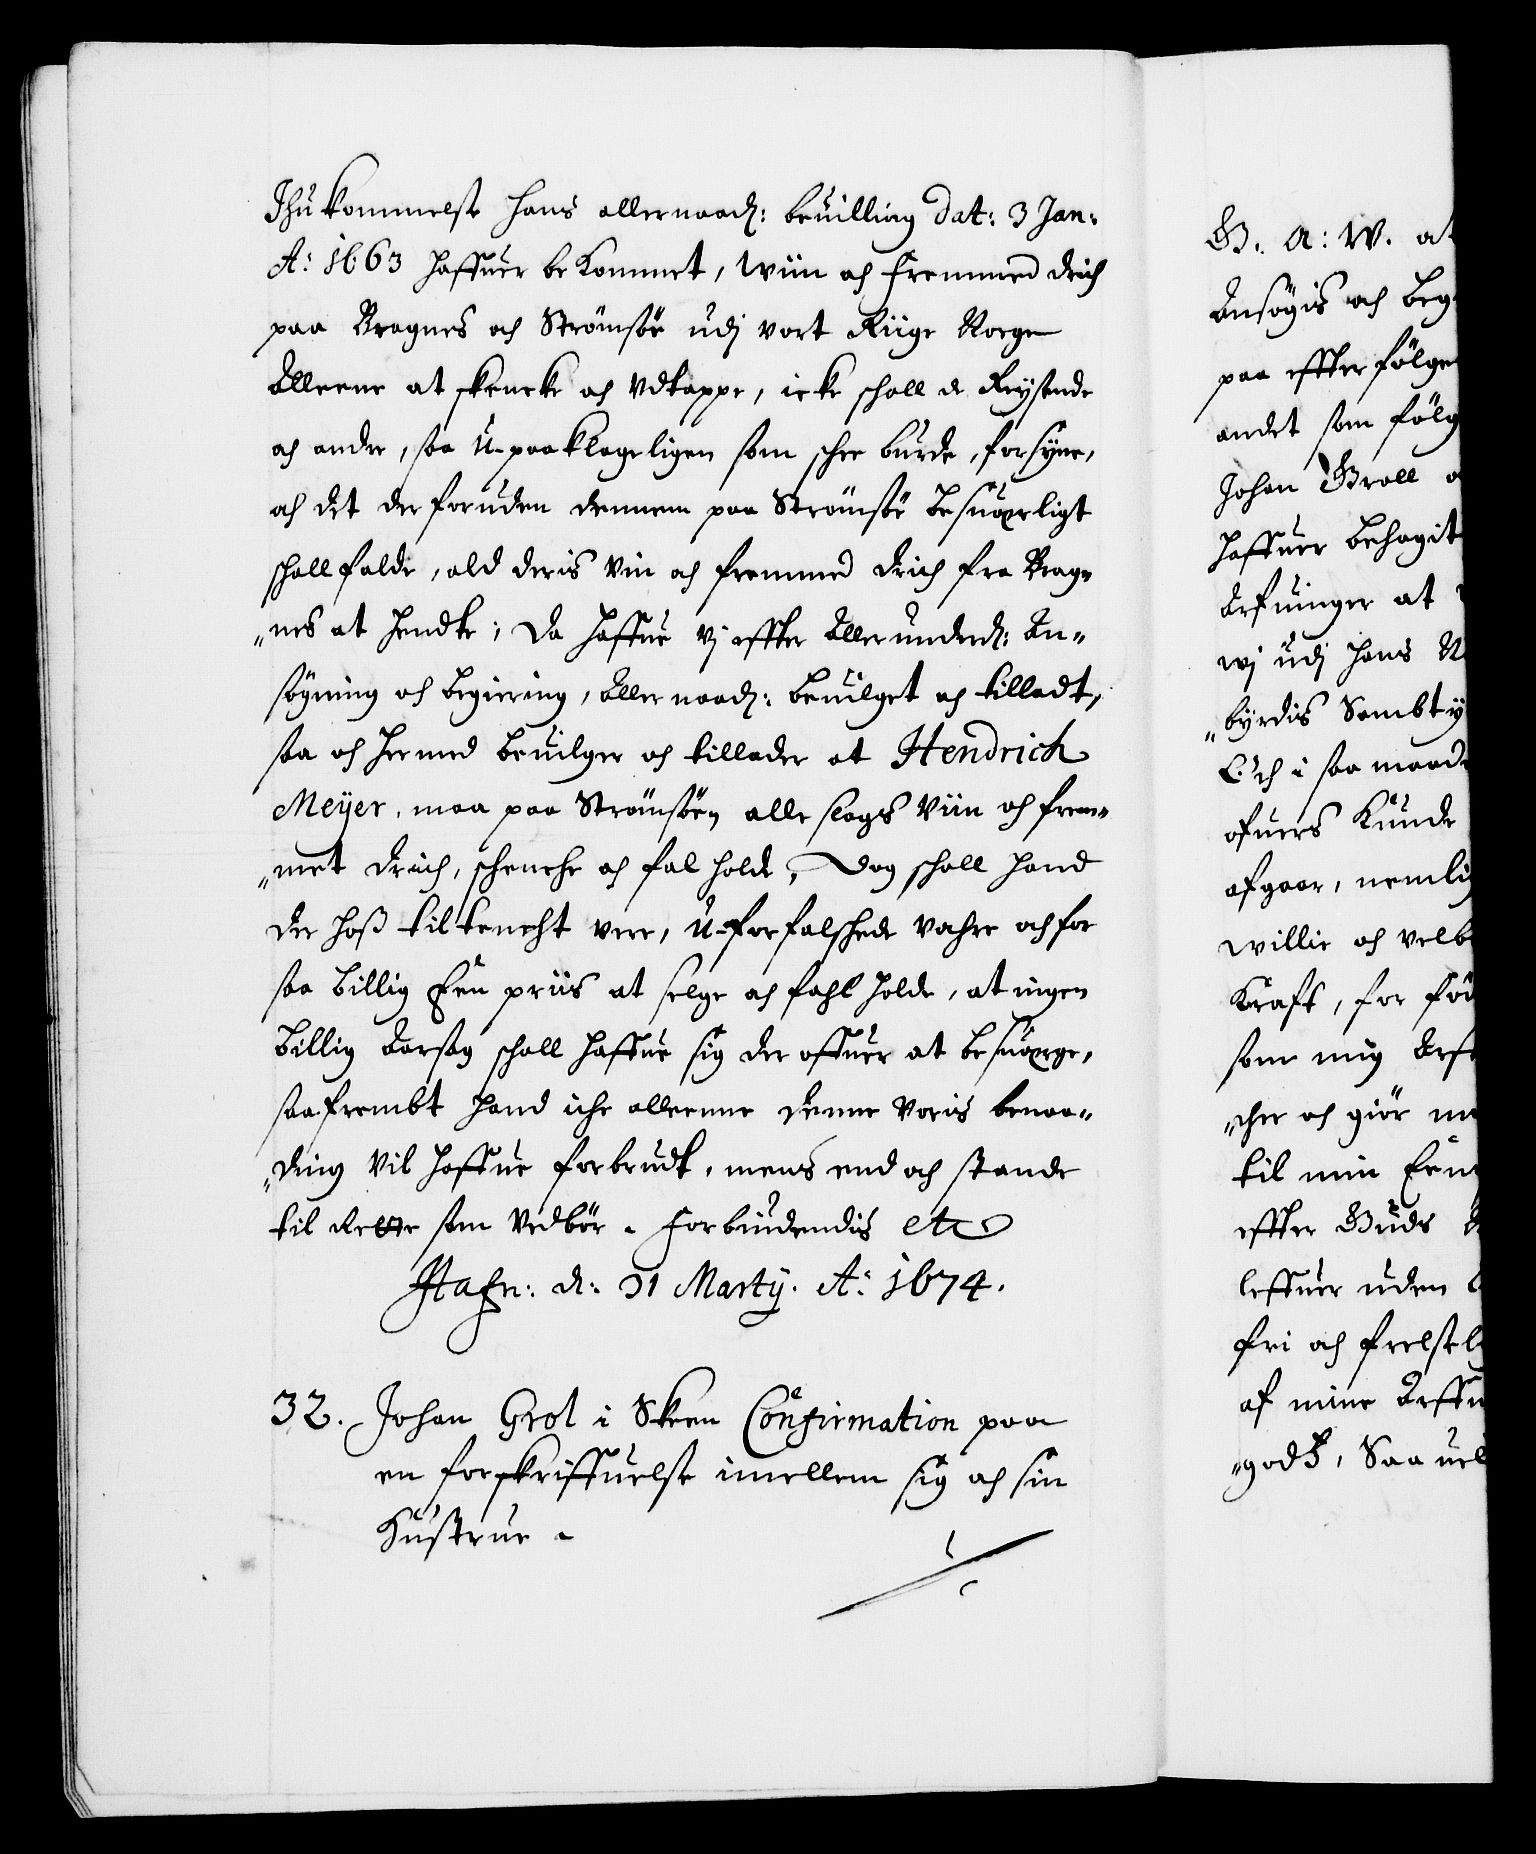 Ihukommelse hans allernaad: beuilling dat: 3 Jan:
A: 1663 haffuer bekommet, Wiin och fremmed drich
paa Bragnes och Strømsøe udj vort Riige Norge
Alleene at skencke och Vdtappe, icke schall de Reysende
och andre, saa U-paaklageligen som schee burde, forsyne,
och det der foruden dennem paa Strømsøe besuærligt
schall falde, ald deris Vin och fremmed drich fra Brag-
"nes at hendte; Da haffue Vj effter Allerunderd: An-
søgning och begiering, Aller naad: beuilget och tilladt,
saa och hermed beuilger och tillader at Hendrich
Meyer, maa paa Strømsøen alle slags Viin och frem-
"met drich, schenche och fal holde, Dog schall hand
der hoß tiltencht vere, U-forfalschede Vahre och for
saa billig Een priis at selge och fahl holde, at ingen
billig Aarsag schall haffue sig der offuer at besuærge,
saafrembt hand iche alleenne denne Voris benaa-
"ding Vil haffue forbrudt, mens end och stande
til Rette som Vedbør. Forbiudendis etc
Hafn: d: 31 Martij. A: 1674.
32. Johan Grol i Skeen Confirmation paa
en forskriffuelse imellem sig och sin
Hustrue.
G. A: W. at
Ansøgis och beg
paa effterfølge
andet som følg
Johan Groll
haffuer behagit
Arfuinger at
wj udj hans
"byrdis Sambty
Och i saa maade
ofuers Kunde
afgaar, nemlig
willie och velb
Kraft, for fød
som mig Arf
"cher och giør
til min
effter Guds
leffuer uden
fri och frelsel
af mine Arffu
"godß, Saa uel